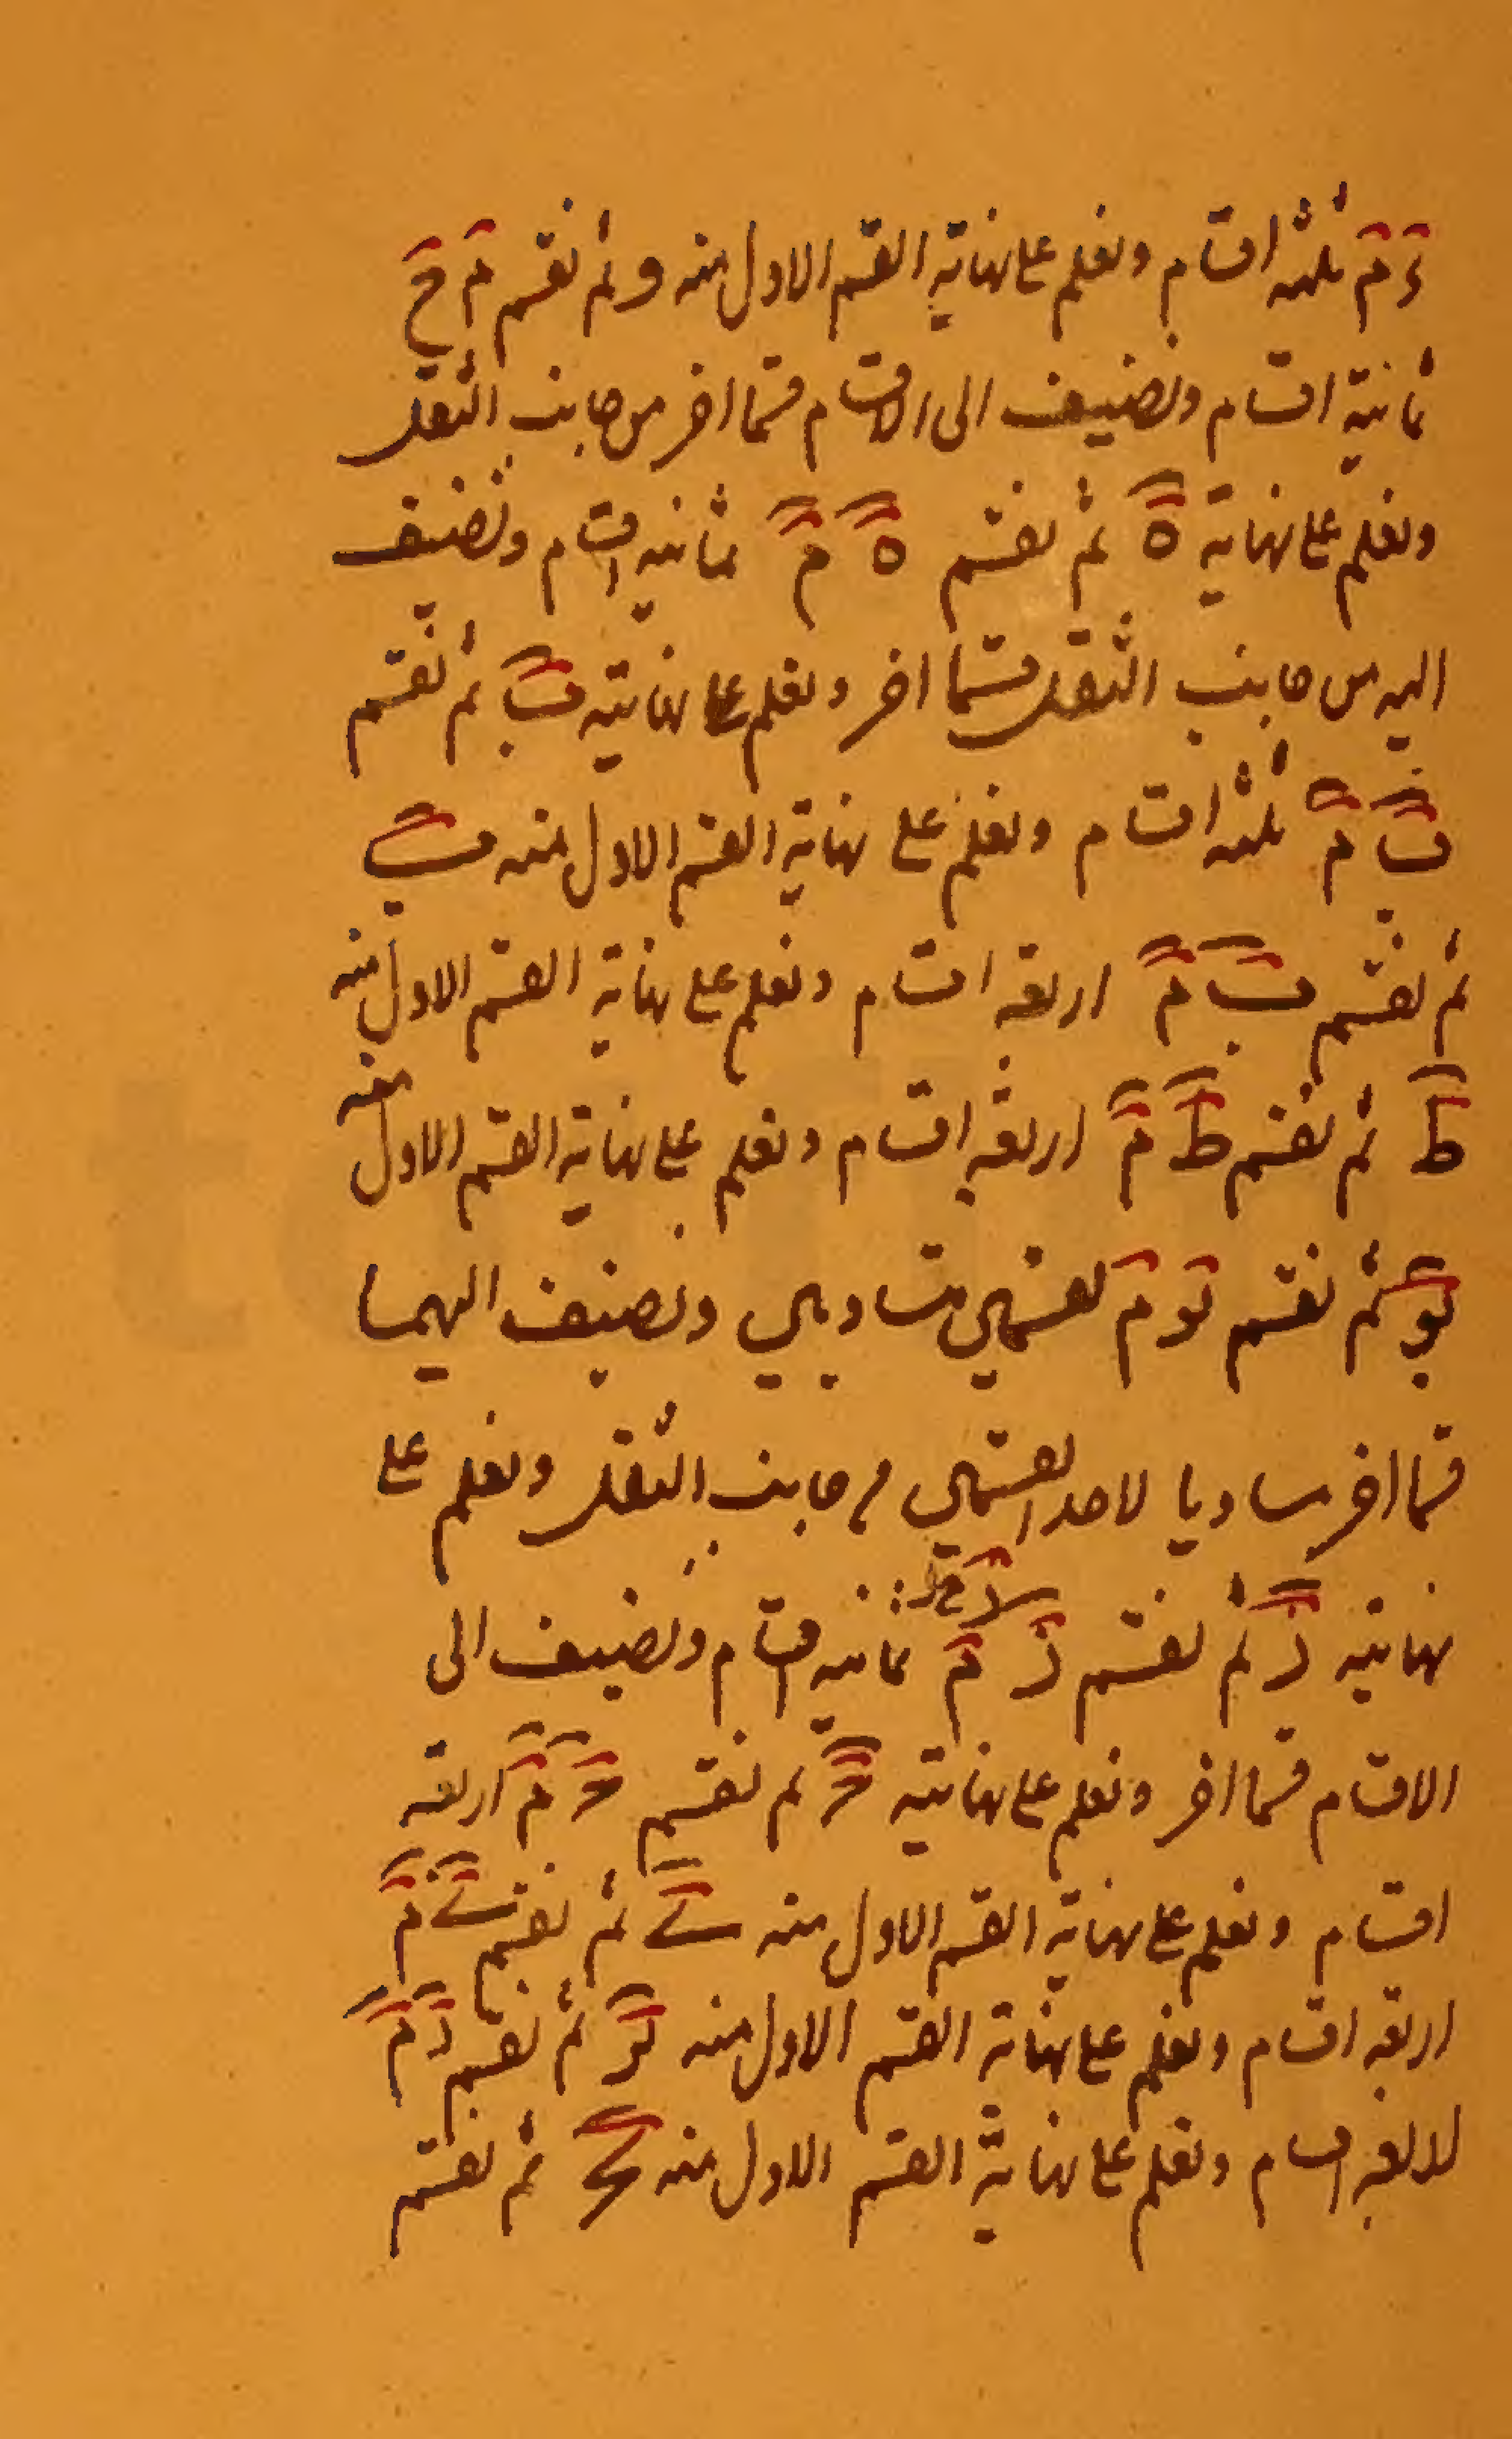 ء م ثلثه اقسام ونعلم على نهاية القسم الاول منه و ثم نقسم م ح
ثمانية اقسام ونضيف الى الاقسام قسما اخر من جانب الثقل
ونعلم على نهايته ه ثم نقسم ه م ثمانيه اقسام ونضيف
اليه من جانب الثقل قسما اخر ونعلم على نهايته ب ثم نقسم
ب م ثلثه اقسام ونعلم على نهاية القسم الاول منه
ثم نقسم م اربعه اقسام ونعلم على نهاية القسم الاول منه
ط ثم نقسم ط م اربعه اقسام ونعلم على نهاية القسم الاول منه
ثم نقسم م بقسمين متساويين ونضيف اليهما
قسما اخر مساويا لاحد القسمين من جانب الثقل ونعلم على
نهايته ثم نقسم م ثمانيه اقسام ونضيف الى
الاقسام قسما اخر ونعلم على نهايته ثم نقسم م اربعه
اقسام ونعلم على نهاية القسم الاول منه ثم نقسم م
اربعه اقسام ونعلم على نهاية القسم الاول منه ثم نقسم م
اقسام ونعلم على نهاية القسم الاول منه ثم نقسم